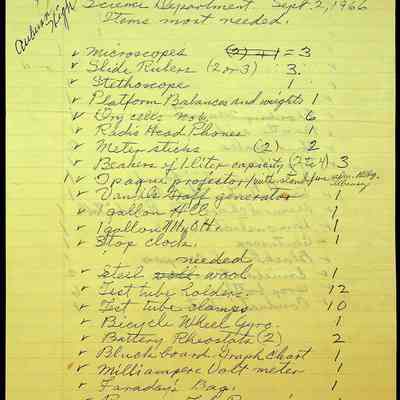 Auburn High
Science Department Sept. 2, 1966
Items most needed.
✓ Microscopes (2) + 1 = 3
✓ Slide Rulers (2 or 3) 3.
✓ Stethoscope 1
✓ Platform Balances and weights 1
✓ Dry cells No 6. 6
✓ Radio Head Phones 1
✓ Meter sticks (2) 2
✓ Beakers of 1 liter capacity (2 to 4) 3
1 ✓ Opaque projector/
✓ Van de Graff generator 1
✓ 1 gallon HCl 1
✓ 1 gallon 1
✓ Stop clock. 1
needed
✓ Steel wool 1
✓ Test tube holders. 12
✓ Test tube clamps 10
✓ Bicycle Wheel Gyro. 1
✓ Battery Rheostats (2) 2
✓ Black board Graph Chart 1
✓ Milliampere Volt meter 1
✓ Faraday's Bag. 1